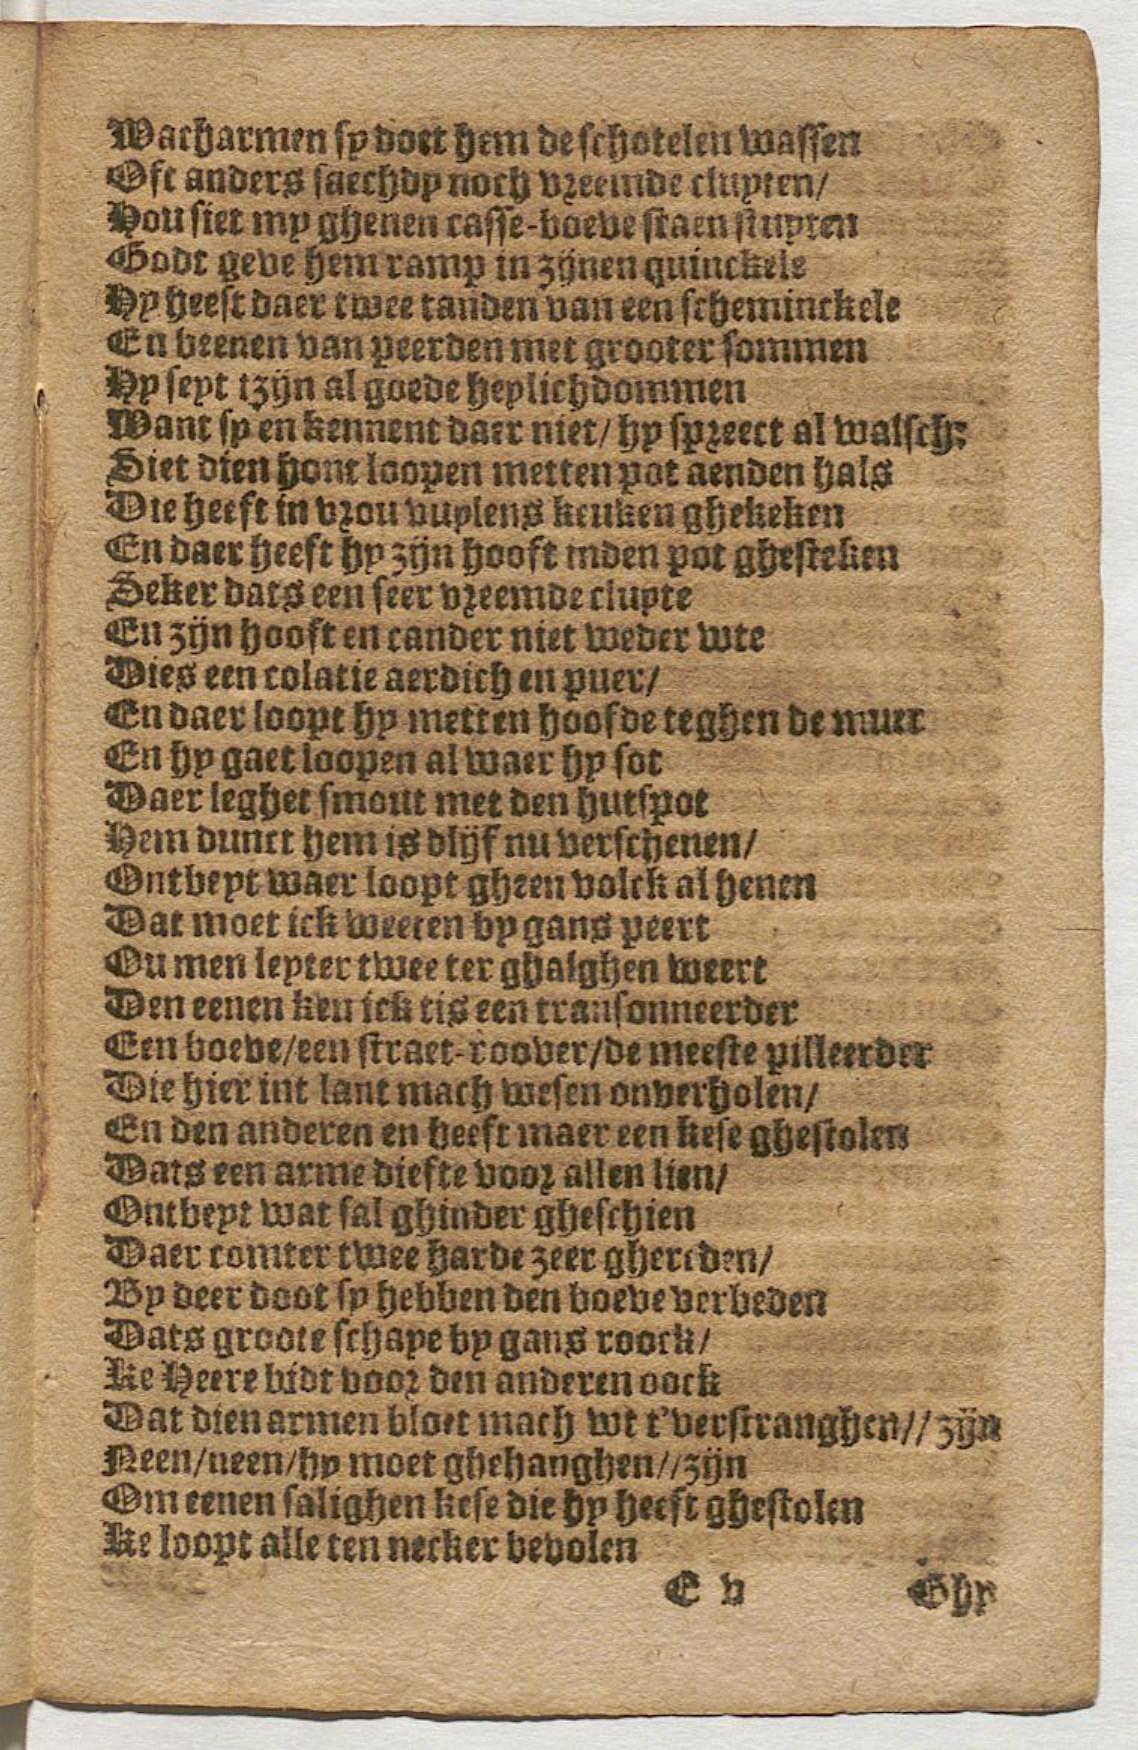 Wacharmen sy doet hem de schotelen wassen
Oft anders saechdy noch vreemde cluyten/
Hou siet my ghenen casse-boeve staen stuyten
Godt geve hem ramp in zijnen quinckele
Hy heeft daer twee tanden van een scheminckele
En beenen van peerden met grooter sommen
Hy seyt tzijn al goede heylichdommen
Want sy en kennent daer niet/ hy spreect al walsch:
Siet dien hont loopen metten pot aenden hals
Die heeft in vrou vuylens keuken ghekeken
En daer heeft hy zijn hooft inden pot ghesteken
Seker dats een seer vreemde cluyte
En zijn hooft en cander niet weder wte
Dies een colatie aerdich en puer/
En daer loopt hy metten hoofde teghen de muer
En hy gaet loopen al waer hy sot
Daer leghet smout met den hutspot
Hem dunct hem is dlijf nu verschenen/
Ontbeyt waer loopt gheen volck al henen
Dat moet ick weeten by gans peert
Ou men leyter twee ter ghalghen weert
Den eenen ken ick tis een transonneerder
Een boeve/een straet-roover/de meeste pilleerder
Die hier int lant mach wesen onverholen/
En den anderen en heeft maer een kese ghestolen
Dats een arme diefte voor allen lien/
Ontbeyt wat sal ghinder gheschien
Daer comter twee harde zeer ghereden/
By deer doot sy hebben den boeve verbeden
Dats groote schape by gans roock/
Ke Heere bidt voor den anderen oock
Dat dien armen bloet mach wt t'verstranghen// zijn
Neen/neen/hy moet ghehanghen//zijn
Om eenen salighen kese die hy heeft ghestolen
Ke loopt alle ten necker bevolen
E v Ghy